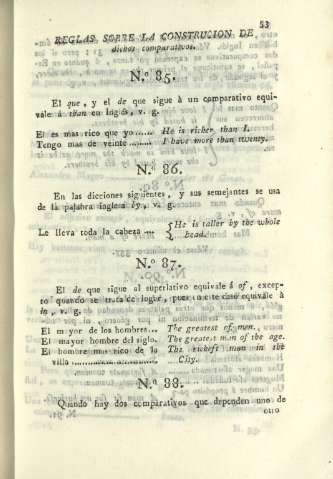 53
REGLAS SOBRE LA CONSTRUCION DE
dichos comparativos.
N.º 85.
El que, y el de que sigue à un comparativo equi-
vale á than en inglés, v. g.
El es mas rico que yo...... He is richer than I.
Tengo mas de veinte ........ I have more than twenty.
N.º 86.
En las dicciones siguientes, y sus semejantes se usa
de la palabra inglesa by, v. g.
Le lleva toda la cabeza .... { He is taller by the whole
head.
N.º 87.
El de que sigue al superlativo equivale á of, excep-
to quando se trata de lugar, pues en este caso equivale à
in, v. g.
El mayor de los hombres... The greatest of men.
El mayor hombre del siglo. The greatest man of the age.
El hombre mas rico de la The richest man in the
villa ........................ City.
N.º 88.
Quando hay dos comparativos que dependen uno de
otro